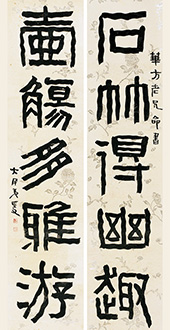 石林得幽趣
華方老兄命書
壺觴多雅游